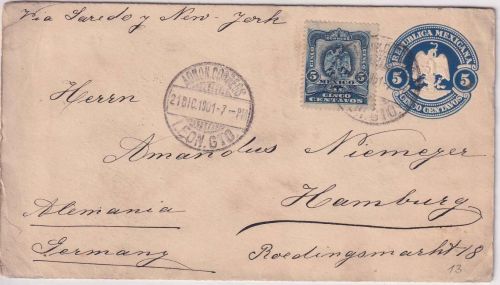 Via Laredo y New-York
REPUBLICA MEXICANA
5 5
CINCO CENTAVOS
CINCO
5 MEXICO 5
CINCO
CENTAVOS
ADMON. CORREOS
21 DIC. 1901-7-PM
LEON. GTO.
GTO.
Herrn
Amandus Niemeyer
Hamburg
Alemania
Germany
Roedingsmarkt 78
13